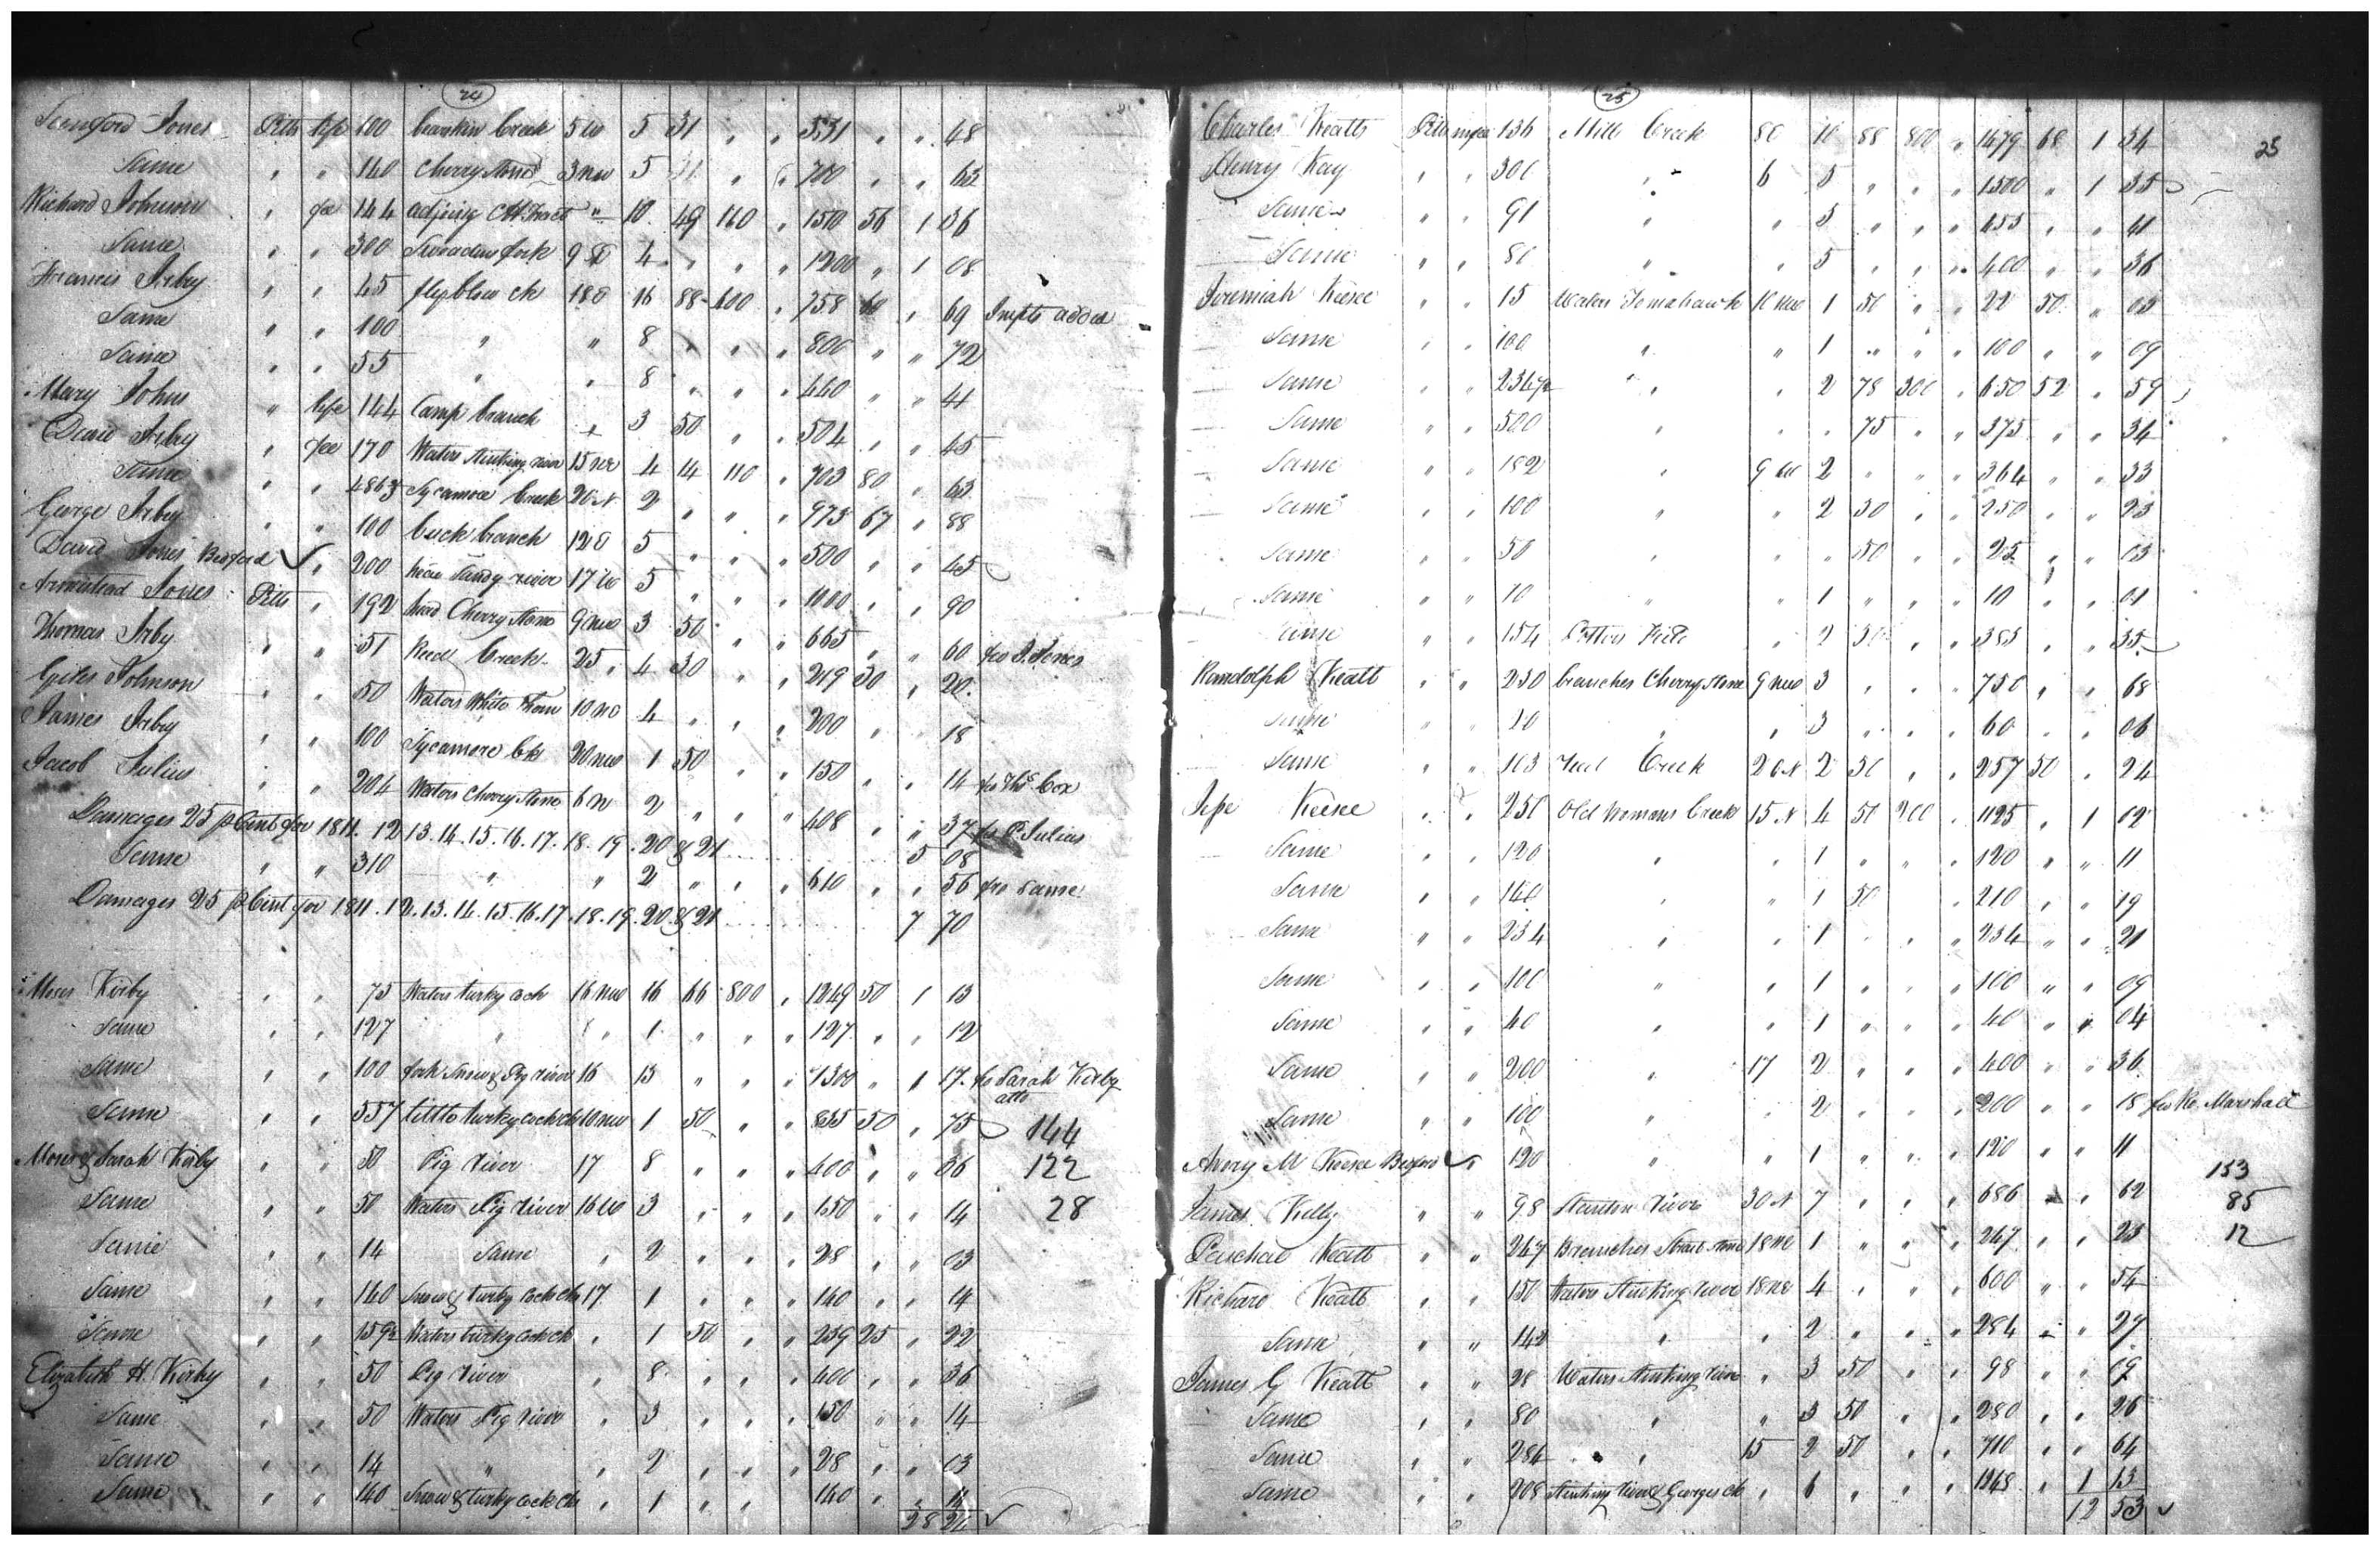 24
Sanford Jones Pitts life 100 bearskin Creek 5 W 5 31 " " 531 " " 48
Same " " 140 Cherrystone 3 NW 5 31 " " 700 " " 63
Richard Johnson " fee 144 adjoing CH tract " 10 49 160 " 1510 56 1 36
Same " " 300 fork 9 4 " " " 1200 " 1 08
Francis Irby " " 45 flyblow ck 18 16 88 600 " 758 60 " 69 Impts added
Same " " 100 " " 8 " " " 800 " " 72
Same " " 55 " " 8 " " " 440 " " 41
Mary Johns " life 144 Camp branch 3 50 " " 504 " " 45
David Irby " fee 170 Waters stinking river 15 NE 4 14 110 " 703 80 " 63
Same " " Sycamore Creek 20 N 2 " " " 973 67 " 88
George Irby " " 100 buck branch 12 5 " " " 500 " " 45
David Jones Bedford ✓ " 200 Sandy river 17 W 5 " " " 1000 " " 90
Armistead Jones Pitts " 192 head Cherrystone 9 NW 3 50 " " 665 " " 60 fro J. Jones
Thomas Irby " " 51 Reed Creek 25 " 4 30 " " 219 30 " 20
Giles Johnson " " 50 Waters White thorn 10 4 " " " 200 " " 18
James Irby " " 100 Sycamore Ck 20 NW 1 50 " " 150 " " 14 fro Ths Cox
Jacob Julius " " 204 Waters Cherrystone 6 N 2 " " " 408 " " 37 fro P. Julius
Damages 25 p Cent for 1811. 12 13. 14. 15. 16. 17. 18. 19. 20 & 21 5 08
Same " " 310 " " 2 " " " 610 " " 56 fro same
Damages 25 p Cent for 1811. 12. 13. 14. 15. 16. 17. 18. 19. 20 & 21 7 70
Moses Kirby " " 75 Waters turky cock 16 NW 16 66 800 " 1249 50 1 13
Same " " 127 " " 1 " " " 127 " " 12
Same " " 100 fork Snow & Pig river 16 13 " " " 1300 " 1 17 fro Sarah Kirby
Same " " 557 little turky cock ck 10 NW 1 50 " " 835 50 " 75 144
Moses & Sarah Kirby " " 50 Pig river 17 8 " " " 400 " " 36 122
Same " " 50 Waters Pig river 16 W 3 " " " 150 " " 14 28
Same " " 14 Same " 2 " " " 28 " " 03
Same " " 140 Snow & turky cock ck 17 1 " " " 140 " " 14
Same " " 159½ Waters turky cock ck " 1 50 " " 239 25 " 22
Elizabeth H. Kirby " " 50 Pig river " 8 " " " 400 " " 36
Same " " 50 Waters Pig river " 3 " " " 150 " " 14
Same " " 14 " " 2 " " " 28 " " 03
Same " " 140 Snow & turky cock ck " 1 " " " 140 " " 14
28 24 ✓
25
25
Charles Keatts Pitts fee 136 Mill Creek 80 10 88 800 " 1479 68 1 34
Henry Kay " " 300 " 6 5 " " " 1500 " 1 35
Same " " 91 " " 5 " " " 455 " " 41
Same " " 80 " " 5 " " " 400 " " 36
Jeremiah Keesee " " 15 Waters Tomahawk 10 NW 1 50 " " 22 50 " 02
Same " " 100 " " 1 " " " 100 " " 09
Same " " 234½ " " 2 78 300 " 650 52 " 59
Same " " 500 " " " 75 " " 375 " " 34
Same " " 182 " 9 W 2 " " " 364 " " 33
Same " " 100 " " 2 50 " " 250 " " 23
Same " " 50 " " " 50 " " 25 " " 03
Same " " 10 " " 1 " " " 10 " " 01
Same " " 154 Potters " 2 50 " " 385 " " 35
Randolph Keatt " " 250 branches Cherrystone 9 NW 3 " " " 750 " " 68
Same " " 20 " " 3 " " " 60 " " 06
Same " " 103 Creek 20 N 2 50 " " 257 50 " 24
Jesse Keesee " " 250 Old Womans Creek 15 N 4 50 200 " 1125 " 1 02
Same " " 120 " " 1 " " " 120 " " 11
Same " " 140 " " 1 50 " 210 " " 19
Same " " 234 " " 1 " " " 234 " " 21
Same " " 100 " " 1 " " " 100 " " 09
Same " " 40 " " 1 " " " 40 " " 04
Same " " 200 " 17 2 " " " 400 " " 36
Same " " 100 " " 2 " " " 200 " " 18 fro Marshall
Avery M Keesee Bedford ✓ " 120 " " 1 " " " 120 " " 11
153
James Kelly " " 98 Stanton river 30 N 7 " " " 686 " " 62 85
Paschal Keatt " " 247 Branches 18 NE 1 " " " 247 " " 23 12
Richard Keatt " " 150 Waters Stinking river 18 NE 4 " " " 600 " " 54
Same " " 142 " " 2 " " " 284 " " 27
James G Keatt " " 28 Waters Stinking river " 3 50 " " 98 " " 09
Same " " 80 " " 3 50 " " 280 " " 26
Same " " 284 " " 15 2 50 " " 710 " " 64
Same " " 208 Stinking river & Georges ck " 6 " " " 1248 " 1 13
12 53 ✓